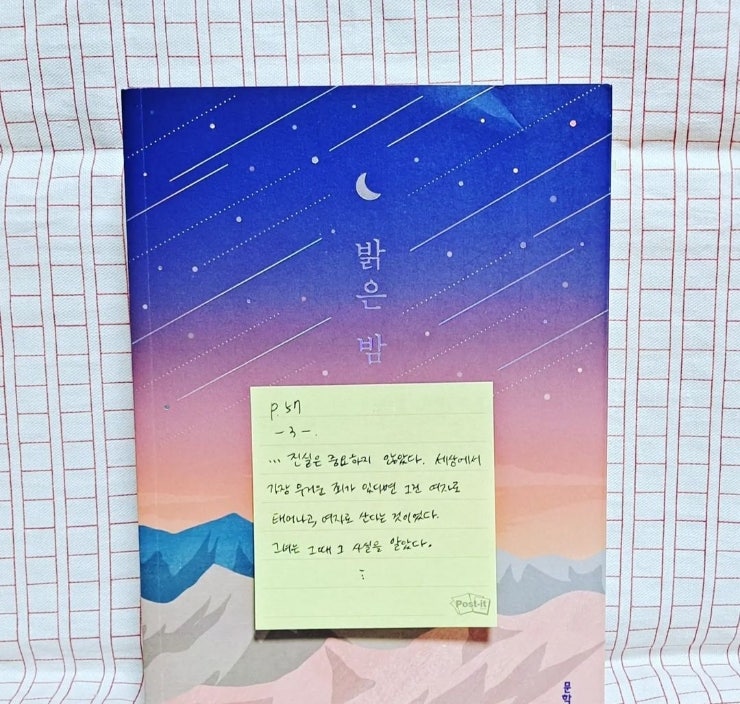 밝은 밤
p.57
-3-.
... 진실은 중요하지 않았다. 세상에서
가장 무거운 죄가 있다면 그건 여자로
태어나고, 여자로 산다는 것이었다.
그녀는 그때 그 사실을 알았다.
⋮
Post-it
문학